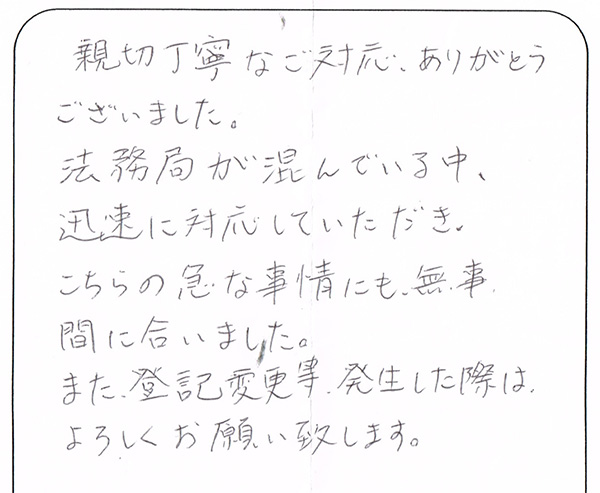 親切丁寧なご対応、ありがとう
ございました。
法務局が混んでいる中、
迅速に対応していただき、
こちらの急な事情にも、無事、
間に合いました。
また、登記変更等、発生した際は、
よろしくお願い致します。